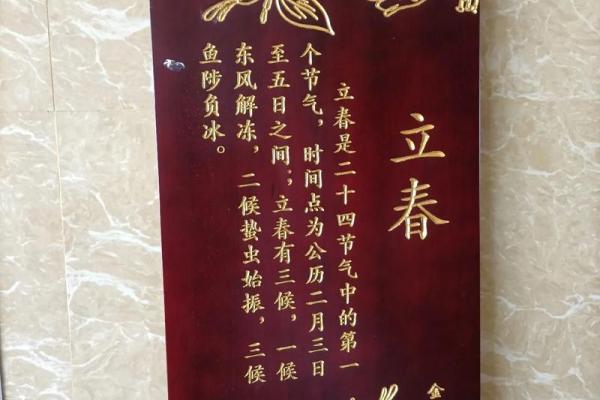 立春
立春是二十四节气中的第一
个节气，时间点为公历二月三日
至五日之间；立春有三候，一候
东风解冻，二候蛰虫始振，三候
鱼陟负冰。
金